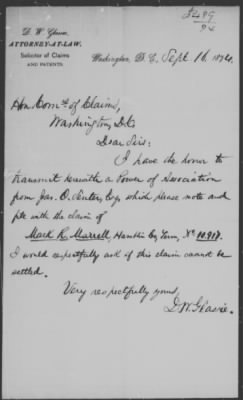 D. W. Glassie,
ATTORNEY-AT-LAW.
Solicitor of Claims
AND PATENTS.
Washington, D. C., Sept. 16, 1874.
Hon Com^rs of Claims,
Washington, D.C.
Dear Sirs:
I have the honor to
transmit herewith a Power of Association
from Jas. O. Senter, Esq., which please note and
file with the claim of
Mack R. Murrell, Hamblin Co., Tenn, No.
I would respectfully ask if this claim cannot be
settled.
Very respectfully yours,
D. W. Glassie.